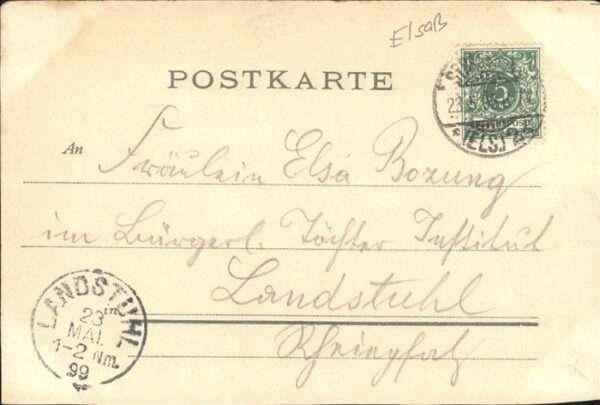 Elsaß
POSTKARTE
23.5
(ELS.) 2
An Fräulein Elsa Bozung
im Bürgerl. Töchter Institut
Landstuhl
Rheinpfalz
LANDSTUHL
23
MAI.
1-2 Nm.
99